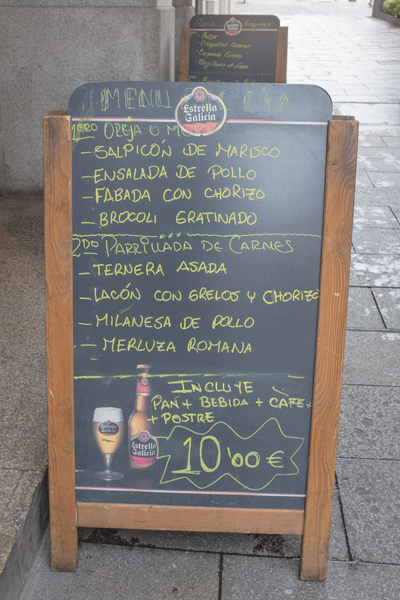 MENU DEL DIA
Estrella
Galicia
1ERO OREJA O
- SALPICÓN DE MARISCO
- ENSALADA DE POLLO
- FABADA CON CHORIZO
- BROCOLI GRATINADO
2DO PARRILLADA DE CARNES
- TERNERA ASADA
- LACÓN CON GRELOS Y CHORIZO
- MILANESA DE POLLO
- MERLUZA ROMANA
INCLUYE
PAN + BEBIDA + CAFE
+ POSTRE
10'00 €
Estrella
Galicia